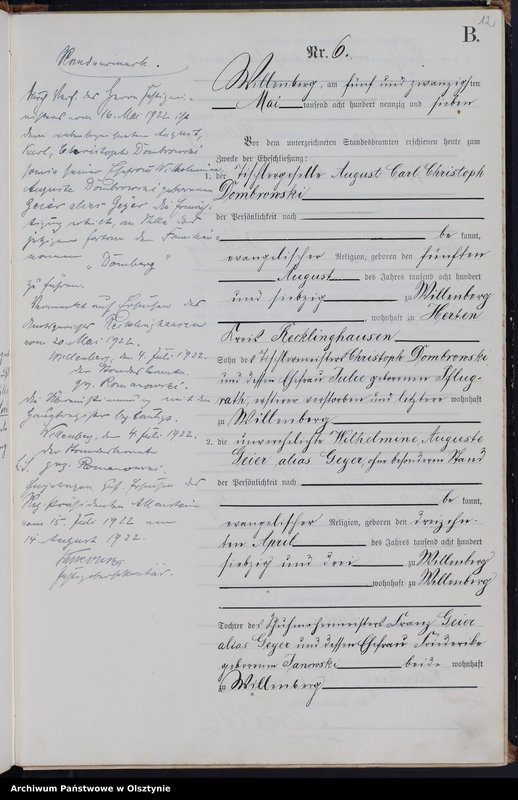 12
B.
Nr. 6.
Willenberg, am fünf und zwanzigsten
Mai tausend acht hundert neunzig und sieben
Vor dem unterzeichneten Standesbeamten erschienen heute zum
Zwecke der Eheschließung:
1. der Tischlergeselle August Carl Christoph
Dombrowski
der Persönlichkeit nach
be kannt,
evangelischer Religion, geboren den fünften
August des Jahres tausend acht hundert
und siebzig zu Willenberg
, wohnhaft zu Herten
Kreis Recklinghausen
Sohn des Tischlermeisters Christoph Dombrowski
und dessen Ehefrau Julie geborenen Pflug-
rath, ersterer verstorben und letztere wohnhaft
zu Willenberg
2. die unverehelichte Wilhelmine, Auguste
Geier alias Geyer, ohne besonderen Stand
der Persönlichkeit nach
be kannt,
evangelischer Religion, geboren den dreizehn-
ten April des Jahres tausend acht hundert
siebzig und drei zu Willenberg
, wohnhaft zu Willenberg
Tochter des Schuhmachermeisters Franz Geier
alias Geyer und dessen Ehefrau Friederike
geborenen Janowski beide wohnhaft
zu Willenberg
Randvermerk.
vom 16. Mai 1922 ist
dem nebenbezeichneten August,
Karl, Christoph Dombrowski
sowie seiner Ehefrau Wilhelmine
Auguste Dombrowski geborenen
Geier alias Geyer die Ermäch-
tigung erteilt, an Stelle des
jetzigen fortan den Familien-
namen „Domberg“
zu führen.
Vermerkt auf Ersuchen des
Amtsgerichts Recklinghausen
vom 20. Mai 1922.
Willenberg, den 4. Juli 1922.
Der Standesbeamte
gez. Romanowski.
Die Übereinstimmung mit dem
Hauptregister beglaubigt.
Willenberg, den 4. Juli 1922.
Der Standesbeamte
gez. Romanowski.
Eingetragen gem. Ersuchen des
Reg. Präsidenten Allenstein
vom 15. Juli 1922 am
14. August 1922.
Justizobersekretär.
Archiwum Państwowe w Olsztynie